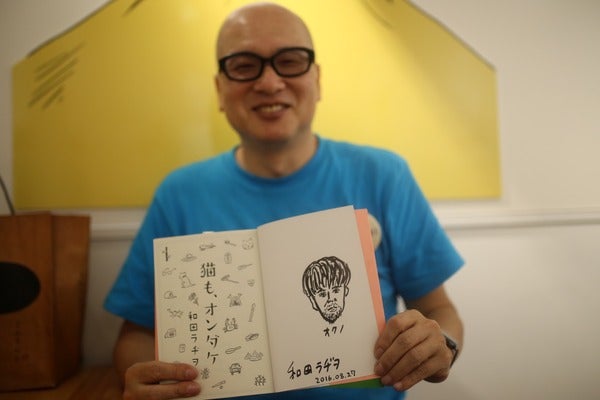 1
猫も、オンダケ
和田ラヂヲ
オクノ
和田ラヂヲ
2016.08.27